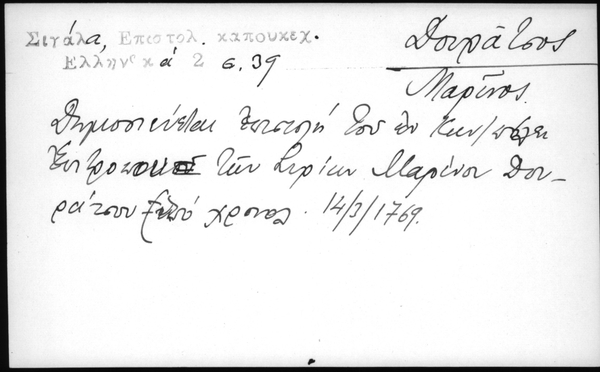 Σιγάλα, Επιστολ. καπουκεχ.
Ελληνικά 2 σ. 39
Δουράτσος
Μαρῖνος.
Δημοσιεύεται ἐπιστολή τοῦ ἐν Κων/πόλει
ἐπιτρόπου τῶν Μαρίνου Δου-
ράτσου ὑπό χρονολ. 14/3/1769.